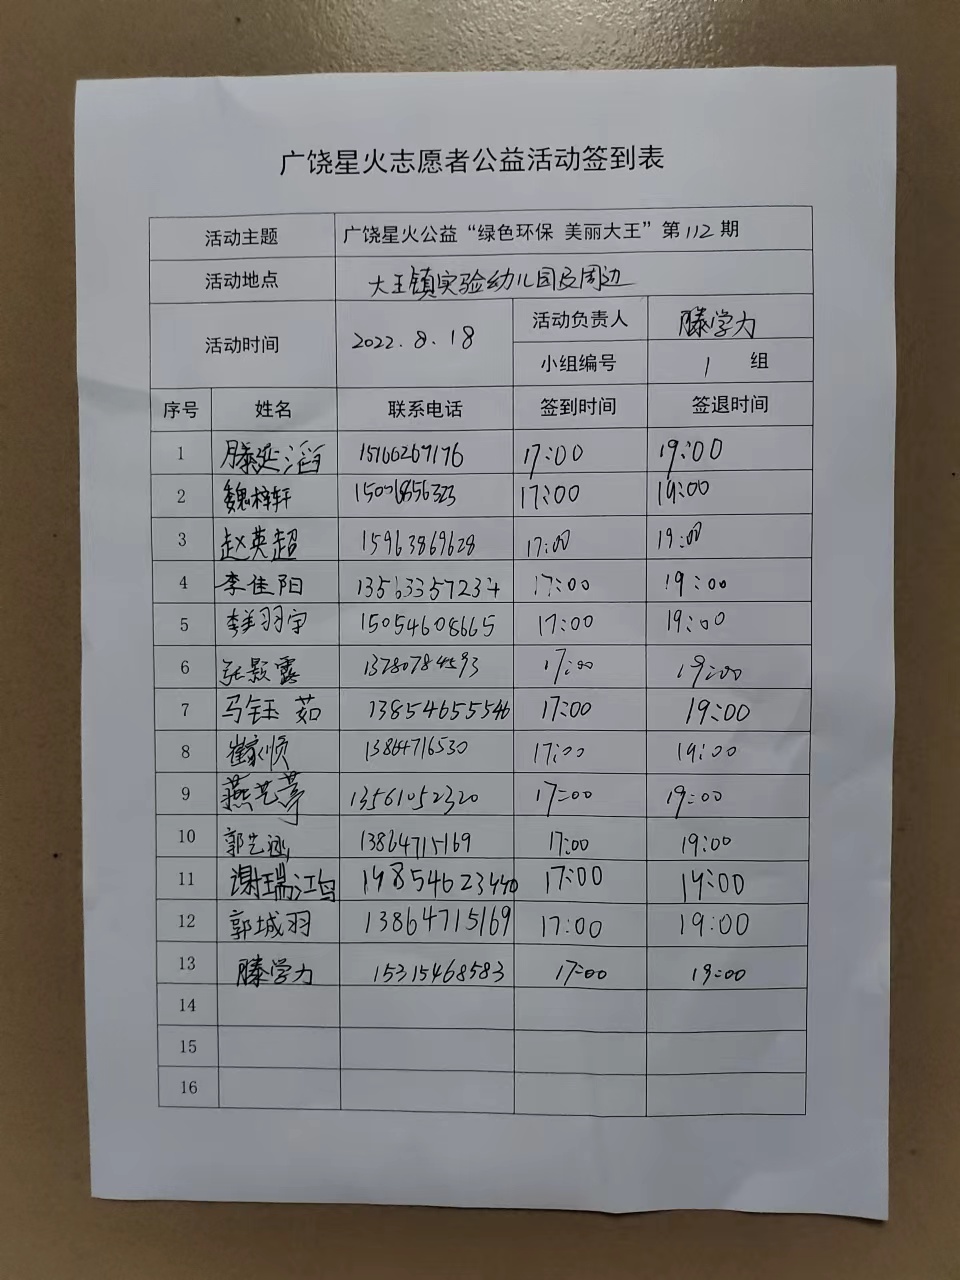 广饶星火志愿者公益活动签到表
活动主题 广饶星火公益“绿色环保 美丽大王”第112期
活动地点 大王镇实验幼儿园及周边
活动时间 2022.8.18 活动负责人 滕学力
小组编号 1 组
序号 姓名 联系电话 签到时间 签退时间
1 滕延滔 15766267176 17:00 19:00
2 魏梓轩 17:00 19:00
3 赵英超 15963869628 17:00 19:00
4 李佳阳 13563357234 17:00 19:00
5 李羽宇 15054608665 17:00 19:00
6 张景露 17:00 19:00
7 马钰茹 13854655546 17:00 19:00
8 崔家顺 13864716530 17:00 19:00
9 燕艺葶 13561052320 17:00 19:00
10 郭艺涵 13864715169 17:00 19:00
11 谢瑞江 17:00 19:00
12 郭城羽 13864715169 17:00 19:00
13 滕学力 15315468583 17:00 19:00
14
15
16